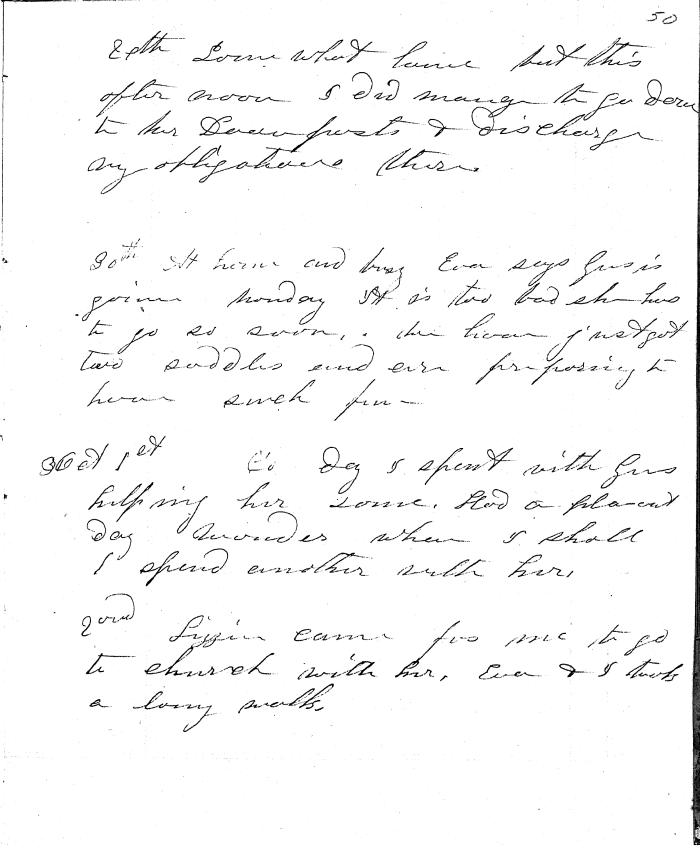 50
29th Some what lame but this
after noon I did mange to go down
to her Davenports & discharge
my obligations there.
30th At home and busy Eva says Gus is
goine Monday It is too bad she has
to go so soon, . we have just got
two saddles and are preparing to
have such fun -
Oct 1st To day I spent with Gus
helping her some. Had a plasent
day wonder when I shall
I spend another with her.
2ond Lizzie came for me to go
to church with her, Eva & I took
a long walk.